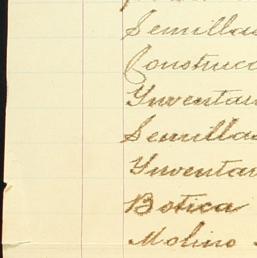 Semillas
Construcc
Inventari
Semillas
Inventar
Botica
Molino